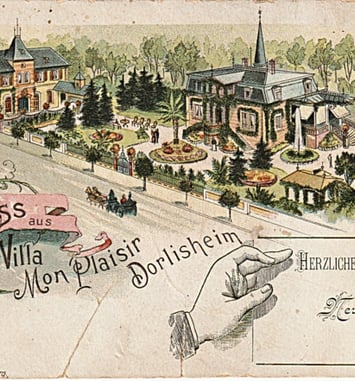 ss aus
Villa
Mon Plaisir
Dorlisheim
HERZLICHE